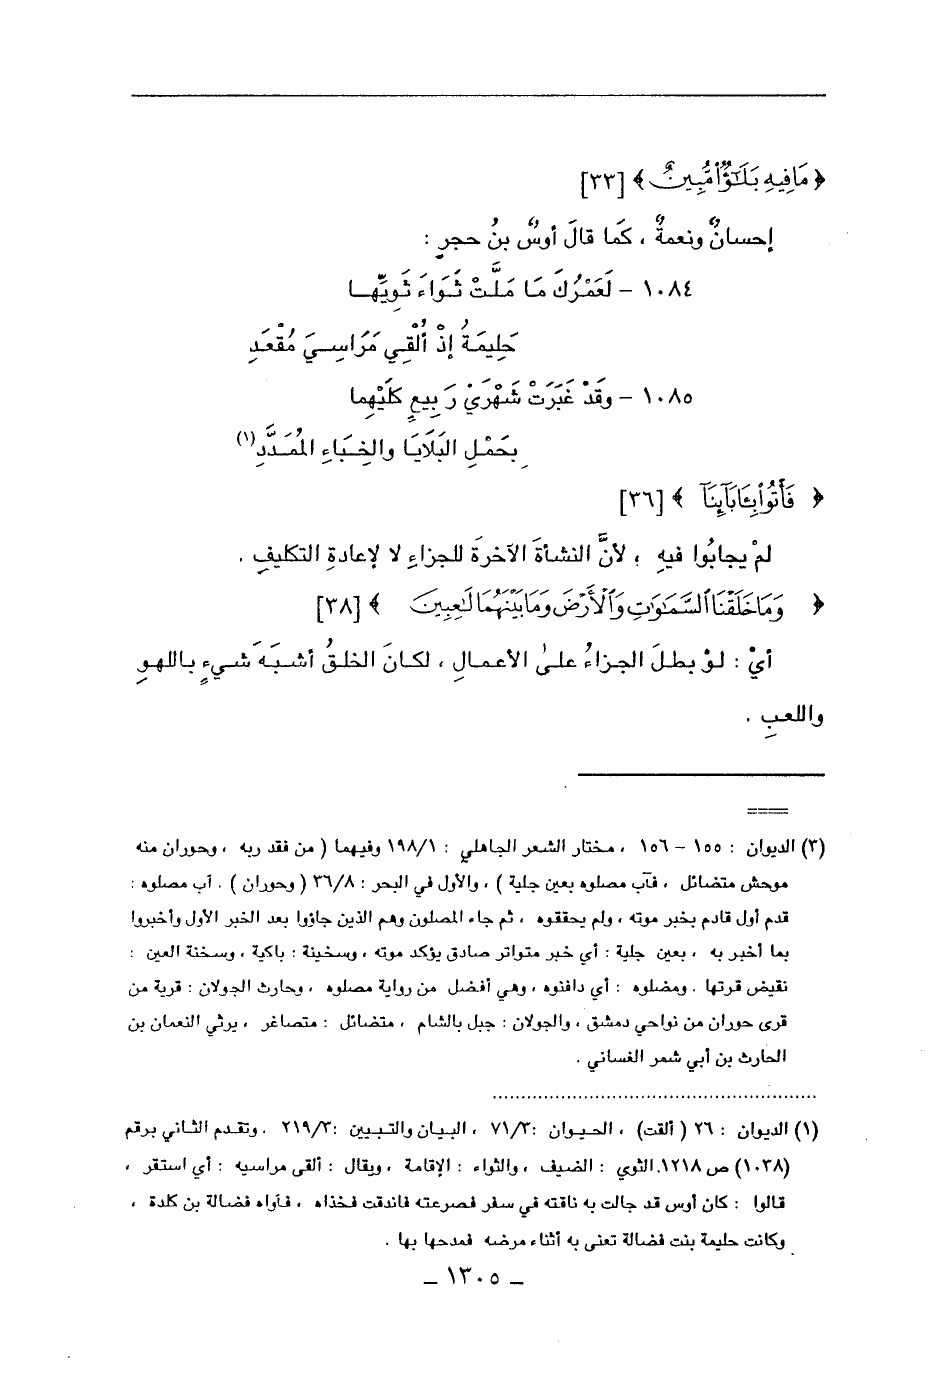 ﴿ مَا فِيهِ بَلَٰٓؤٌا۟ مُّبِينٌ ﴾ [٣٣]
إحسانٌ ونعمةٌ ، كَما قالَ أوسُ بنُ حجرٍ :
١٠٨٤ – لَعَمْرُكَ مَا مَلَّتْ ثَوَاءَ ثَوِيِّهَا
حَلِيمَةُ إذْ أُلْقِي مَرَاسِيَ مُقْعَدِ
١٠٨٥ – وقَدْ غَبَرَتْ شَهْرَيْ رَبِيعٍ كَلَيْهِما
بِحَمْلِ البَلَايَا والخِبَاءِ المُمَدَّدِ(١)
﴿ فَأْتُوا۟ بِـَٔابَآئِنَآ ﴾ [٣٦]
لمْ يجابُوا فيهِ ، لأنَّ النشأةَ الآخرةَ للجزاءِ لا لإعادةِ التكليفِ .
﴿ وَمَا خَلَقْنَا ٱلسَّمَٰوَٰتِ وَٱلْأَرْضَ وَمَا بَيْنَهُمَا لَٰعِبِينَ ﴾ [٣٨]
أيْ : لوْ بطلَ الجزاءُ علىٰ الأعمالِ ، لكانَ الخلقُ أشبَهَ شيءٍ باللهوِ
واللعبِ .
====
(٣) الديوان : ١٥٥ – ١٥٦ ، مختار الشعر الجاهلي : ١٩٨/١ وفيهما ( من فقد ربه ، وحوران منه
موحش متضائل ، فآب مصلوه بعين جلية ) ، والأول في البحر : ٣٦/٨ ( وحوران ) . آب مصلوه :
قدم أول قادم بخبر موته ، ولم يحققوه ، ثم جاء المصلون وهم الذين جاؤوا بعد الخبر الأول وأخبروا
بما أخبر به ، بعين جلية : أي خبر متواتر صادق يؤكد موته ، وسخينة : باكية ، وسخنة العين :
نقيض قرتها . ومضلوه : أي دافنوه ، وهي أفضل من رواية مصلوه ، وحارث الجولان : قرية من
قرى حوران من نواحي دمشق ، والجولان : جبل بالشام ، متضائل : متصاغر ، يرثي النعمان بن
الحارث بن أبي شمر الغساني .
(١) الديوان : ٢٦ ( ألقت) ، الحيوان :٧١/٣ ، البيان والتبيين :٢١٩/٣ . وتقدم الثاني برقم
(١٠٣٨) ص ١٢١٨. الثوي : الضيف ، والثواء : الإقامة ، ويقال : ألقى مراسيه : أي استقر ،
قالوا : كان أوس قد جالت به ناقته في سفر فصرعته فاندقت فخذاه ، فآواه فضالة بن كلدة ،
وكانت حليمة بنت فضالة تعنى به أثناء مرضه فمدحها بها .
– ١٣٠٥ –